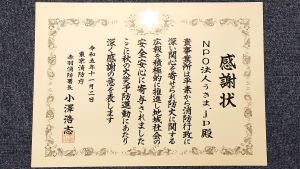 感謝状
NPO法人うきま.jp殿
貴事業所は平素から消防行政に
深い関心を寄せられ防火に関する
広報を積極的に推進し地域社会の
安全安心に寄与されました
ここに秋の火災予防運動にあたり
深く感謝の意を表します
令和五年十一月二日
東京消防庁
赤羽消防署長 小澤浩志